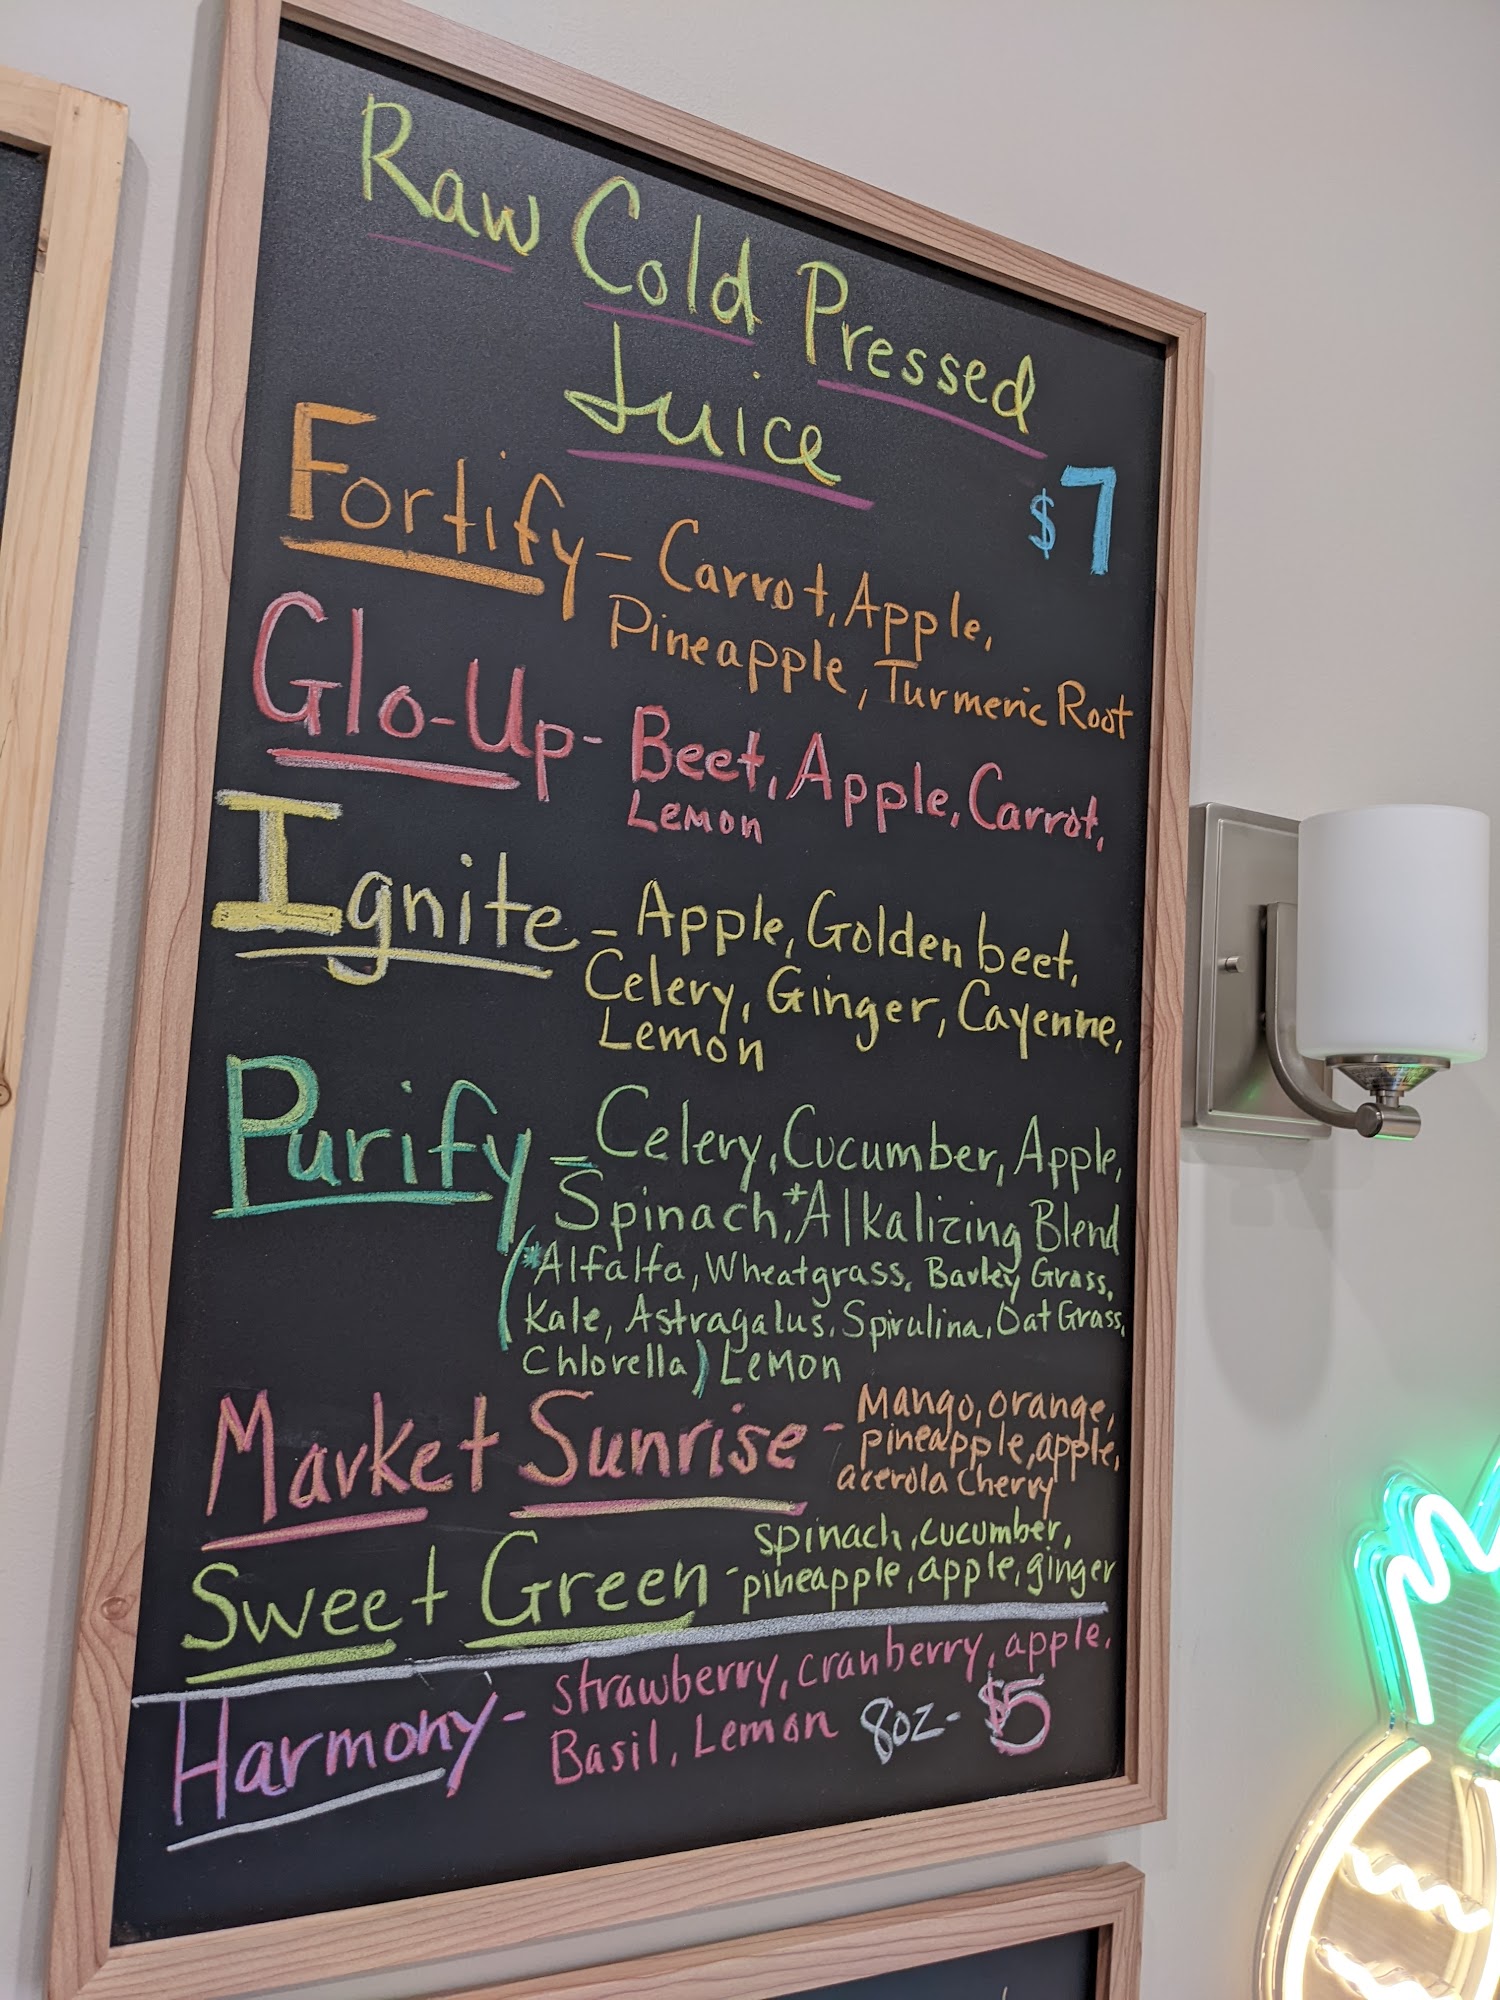 Raw Cold Pressed
Juice
$7
Fortify - Carrot, Apple,
Pineapple, Turmeric Root
Glo-Up - Beet, Apple, Carrot,
Lemon
Ignite - Apple, Golden beet,
Celery, Ginger, Cayenne,
Lemon
Purify - Celery, Cucumber, Apple,
Spinach, *Alkalizing Blend
(*Alfalfa, Wheatgrass, Barley Grass,
Kale, Astragalus, Spirulina, Oat Grass,
Chlorella) Lemon
Market Sunrise - Mango, orange,
pineapple, apple,
acerola Cherry
Sweet Green - spinach, cucumber,
pineapple, apple, ginger
Harmony - strawberry, cranberry, apple,
Basil, Lemon 8oz - $5